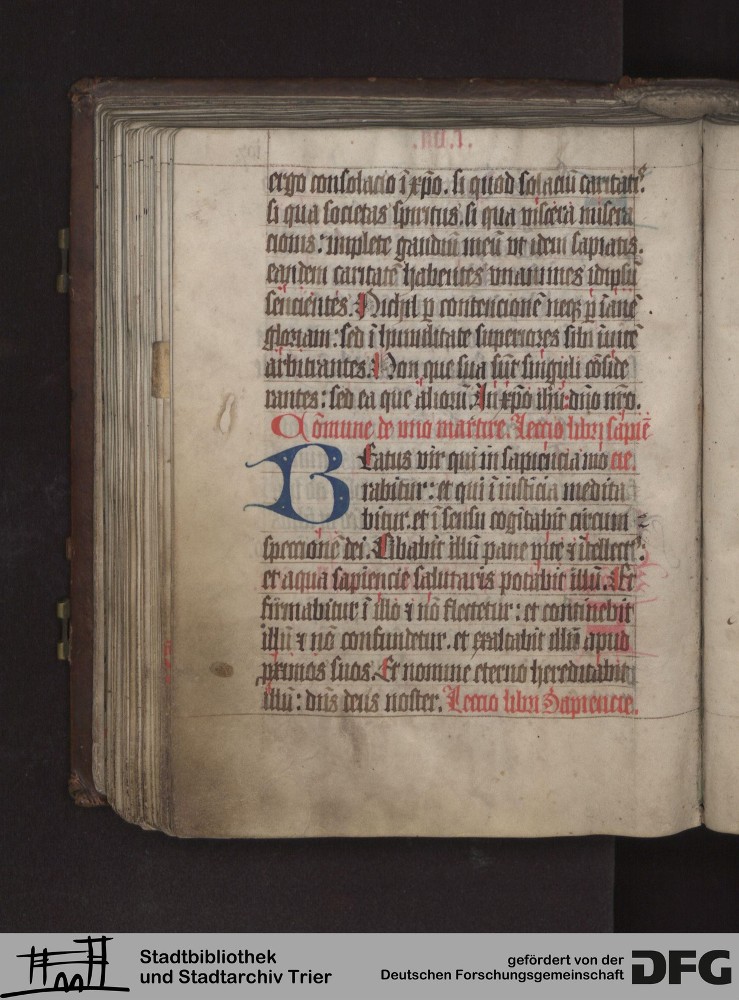 ergo consolacio ī xp̄o. si quod solaciū caritatꝭ.
si qua societas spiritus. si qua viscera misera
cionis: implete gaudiū meū vt idem sapiatis.
eandem caritatē habentes vnanimes idipsū
sencientes. Nichil ꝑ contencionē neqꝫ ꝑ īanē
gloriam: sed ī humilitate superiores sibi īuicē
arbitrantes. Non que sua sūt singuli cōside
rantes: sed ea que alioru̅. In xp̄o ih̄u dn̄o nr̄o.
Cōmune de vno martire. Leccio libri sapiē
Beatus vir qui in sapiencia mo cie.
rabitur: et qui ī iusticia medita
bitur. et ī sensu cogitabit circum
speccionē dei. Cibabit illū pane vite ⁊ ītellectꝰ:
et aqua sapiencie salutaris potabit illū. Et
firmabitur ī illo ⁊ nō flectetur: et continebit
illū ⁊ nō confundetur. et exaltabit illū apud
primos suos. Et nomine eterno hereditabit
illū: dn̄s deus noster. Leccio libri Sapiencie.
Stadtbibliothek
und Stadtarchiv Trier
gefördert von der
Deutschen Forschungsgemeinschaft
DFG